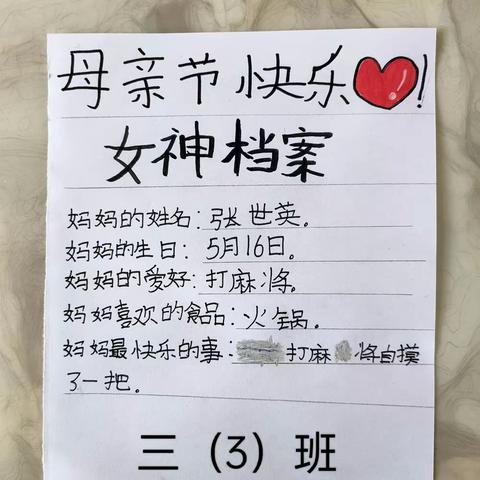 母亲节快乐!
女神档案
妈妈的姓名:张世英.
妈妈的生日:5月16日.
妈妈的爱好:打麻将.
妈妈喜欢的食品:火锅.
妈妈最快乐的事:打麻将自摸
了一把.
三(3)班